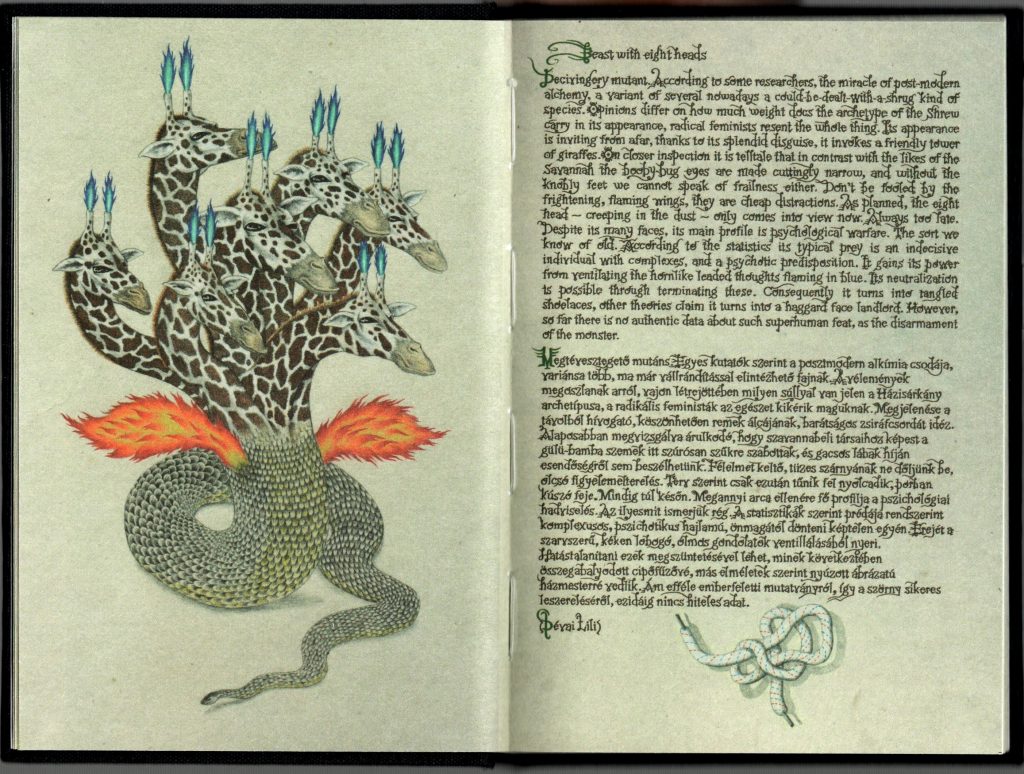 Beast with eight heads
Decivingery mutant. According to some researchers, the miracle of post-modern
alchemy, a variant of several nowadays a could-be-dealt-with-a-shrug kind of
species. Opinions differ on how much weight does the archetype of the Shrew
carry in its appearance, radical feminists resent the whole thing. Its appearance
is inviting from afar, thanks to its splendid disguise, it invokes a friendly tower
of giraffes. On closer inspection it is telltale that in contrast with the likes of the
Savannah the booby-bug eyes are made cuttingly narrow, and without the
knobly feet we cannot speak of frailness either. Don't be fooled by the
frightening, flaming wings, they are cheap distractions. As planned, the eight
head – creeping in the dust – only comes into view now. Always too late.
Despite its many faces, its main profile is psychological warfare. The sort we
know of old. According to the statistics its typical prey is an indecisive
individual with complexes, and a psychotic predisposition. It gains its power
from ventilating the hornlike leaded thoughts flaming in blue. Its neutralization
is possible through terminating these. Consequently it turns into tangled
shoelaces, other theories claim it turns into a haggard face landlord. However,
so far there is no authentic data about such superhuman feat, as the disarmament
of the monster.
Megtévesztegető mutáns. Egyes kutatók szerint a posztmodern alkímia csodája,
variánsa több, ma már vállrándítással elintézhető fajnak. A vélemények
megoszlanak arról, vajon létrejöttében milyen súllyal van jelen a Házisárkány
archetípusa, a radikális feministák az egészet kikérik maguknak. Megjelenése a
távolból hívogató, köszönhetően remek álcájának, barátságos zsiráfcsordát idéz.
Alaposabban megvizsgálva árulkodó, hogy szavannabeli társaihoz képest a
gülü-bamba szemek itt szúrósan szűkre szabottak, és gacsos lábak híján
esendőségről sem beszélhetünk. Félelmet keltő, tüzes szárnyának ne dőljünk be,
olcsó figyelemelterelés. Terv szerint csak ezután tűnik fel nyolcadik, porban
kúszó feje. Mindig túl későn. Megannyi arca ellenére fő profilja a pszichológiai
hadviselés. Az ilyesmit ismerjük rég. A statisztikák szerint prédája rendszerint
komplexusos, pszichotikus hajlamú, önmagától dönteni képtelen egyén. Erejét a
szarvszerű, kéken lobogó, ólmos gondolatok ventillálásából nyeri.
Hatástalanítani ezek megszüntetésével lehet, minek következtében
összegabalyodott cipőfűzővé, más elméletek szerint nyúzott ábrázatú
házmesterré vedlik. Ám efféle emberfeletti mutatványról, így a szörny sikeres
leszereléséről, ezidáig nincs hiteles adat.
Dévai Lili